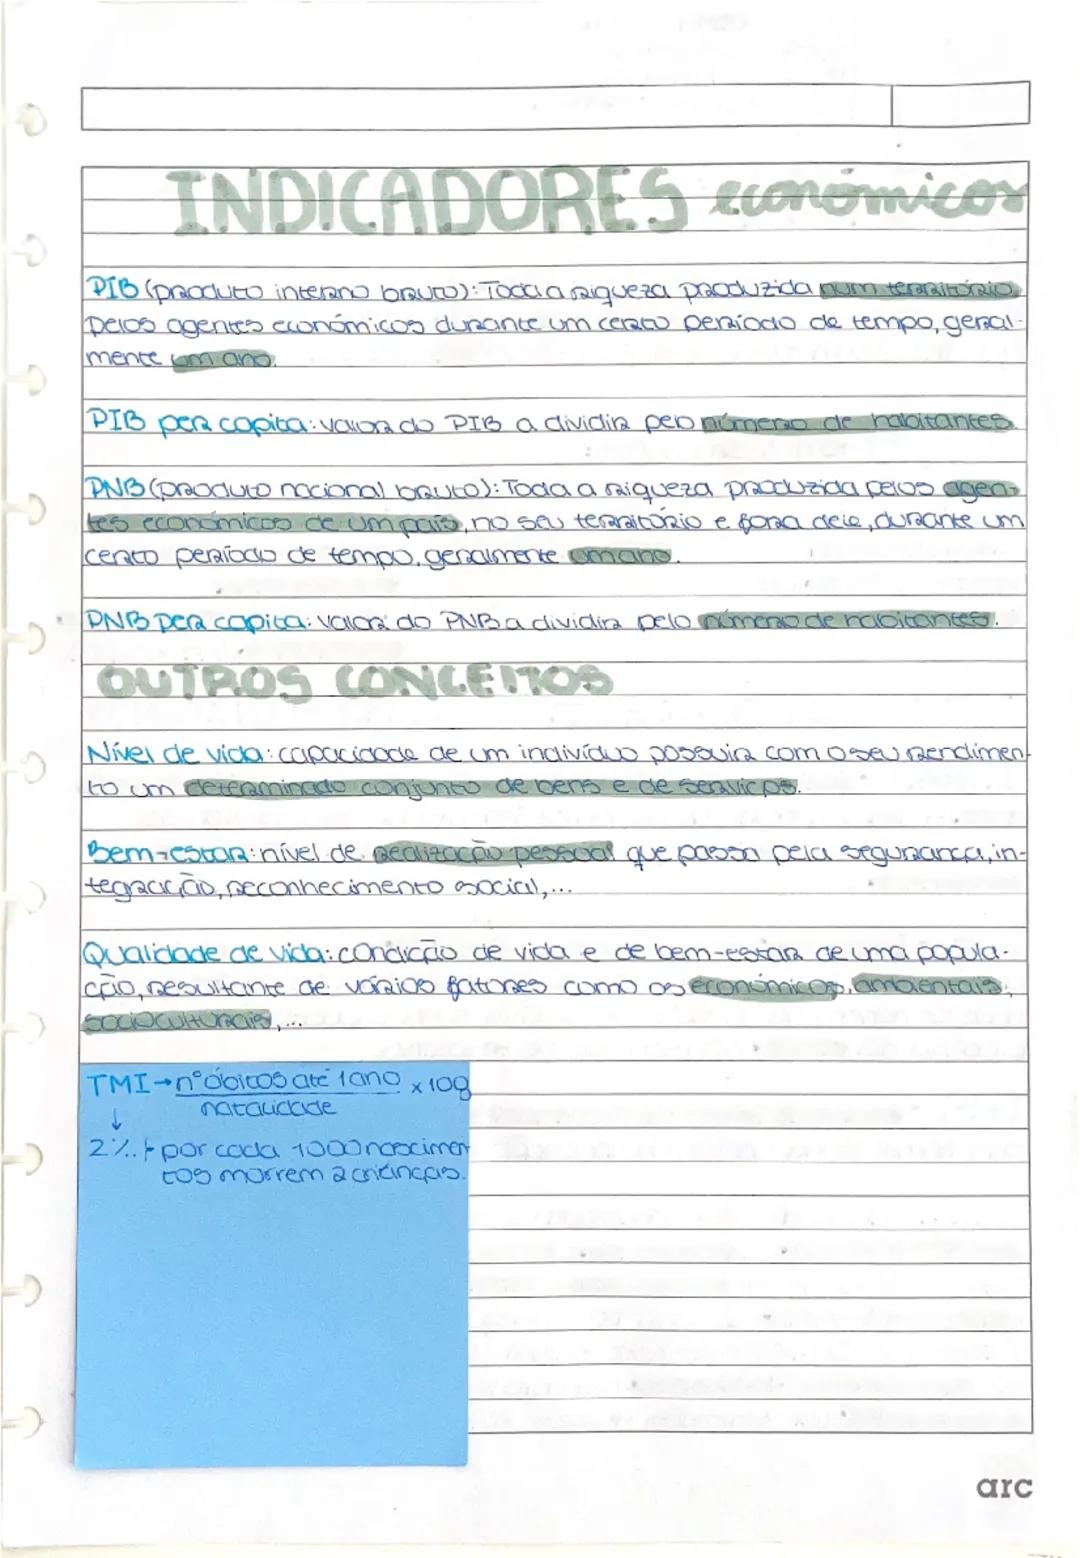 INDICADORES económicos
PIB (produto interno bruto): Toda a riqueza produzida num território
pelos agentes económicos durante um certo período de tempo, geral-
mente um ano.
PIB per capita: valor do PIB a dividir pelo número de habitantes.
PNB (produto nacional bruto): Toda a riqueza produzida pelos agen-
tes económicos de um país, no seu território e fora dele, durante um
certo período de tempo, geralmente um ano.
PNB per capita: valor do PNB a dividir pelo número de habitantes.
OUTROS CONCEITOS
Nível de vida: capacidade de um indivíduo possuir com o seu rendimen-
to um determinado conjunto de bens e de serviços.
Bem-estar: nível de realização pessoal que passa pela segurança, in-
tegração, reconhecimento social,...
Qualidade de vida: condição de vida e de bem-estar de uma popula-
ção, resultante de vários fatores como os económicos, ambientais,
socioculturais,...
TMI → nº óbitos até 1 ano x 100
natalidade
↓
2%. → por cada 1000 nascimen
tos morrem 2 crianças.
arc